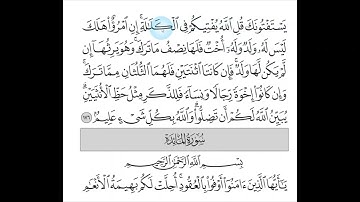 يَسْتَفْتُونَكَ قُلِ ٱللَّهُ يُفْتِيكُمْ فِى ٱلْكَلَـٰلَةِ ۚ إِنِ ٱمْرُؤٌا۟ هَلَكَ
لَيْسَ لَهُۥ وَلَدٌ وَلَهُۥٓ أُخْتٌ فَلَهَا نِصْفُ مَا تَرَكَ ۚ وَهُوَ يَرِثُهَآ إِن
لَّمْ يَكُن لَّهَا وَلَدٌ ۚ فَإِن كَانَتَا ٱثْنَتَيْنِ فَلَهُمَا ٱلثُّلُثَانِ مِمَّا تَرَكَ ۚ
وَإِن كَانُوٓا۟ إِخْوَةً رِّجَالًا وَنِسَآءً فَلِلذَّكَرِ مِثْلُ حَظِّ ٱلْأُنثَيَيْنِ ۗ
يُبَيِّنُ ٱللَّهُ لَكُمْ أَن تَضِلُّوا۟ ۗ وَٱللَّهُ بِكُلِّ شَىْءٍ عَلِيمٌۢ ١٧٦
سُورَةُ المَائِدَةِ
بِسْمِ ٱللَّهِ ٱلرَّحْمَـٰنِ ٱلرَّحِيمِ
يَـٰٓأَيُّهَا ٱلَّذِينَ ءَامَنُوٓا۟ أَوْفُوا۟ بِٱلْعُقُودِ ۚ أُحِلَّتْ لَكُم بَهِيمَةُ ٱلْأَنْعَـٰمِ